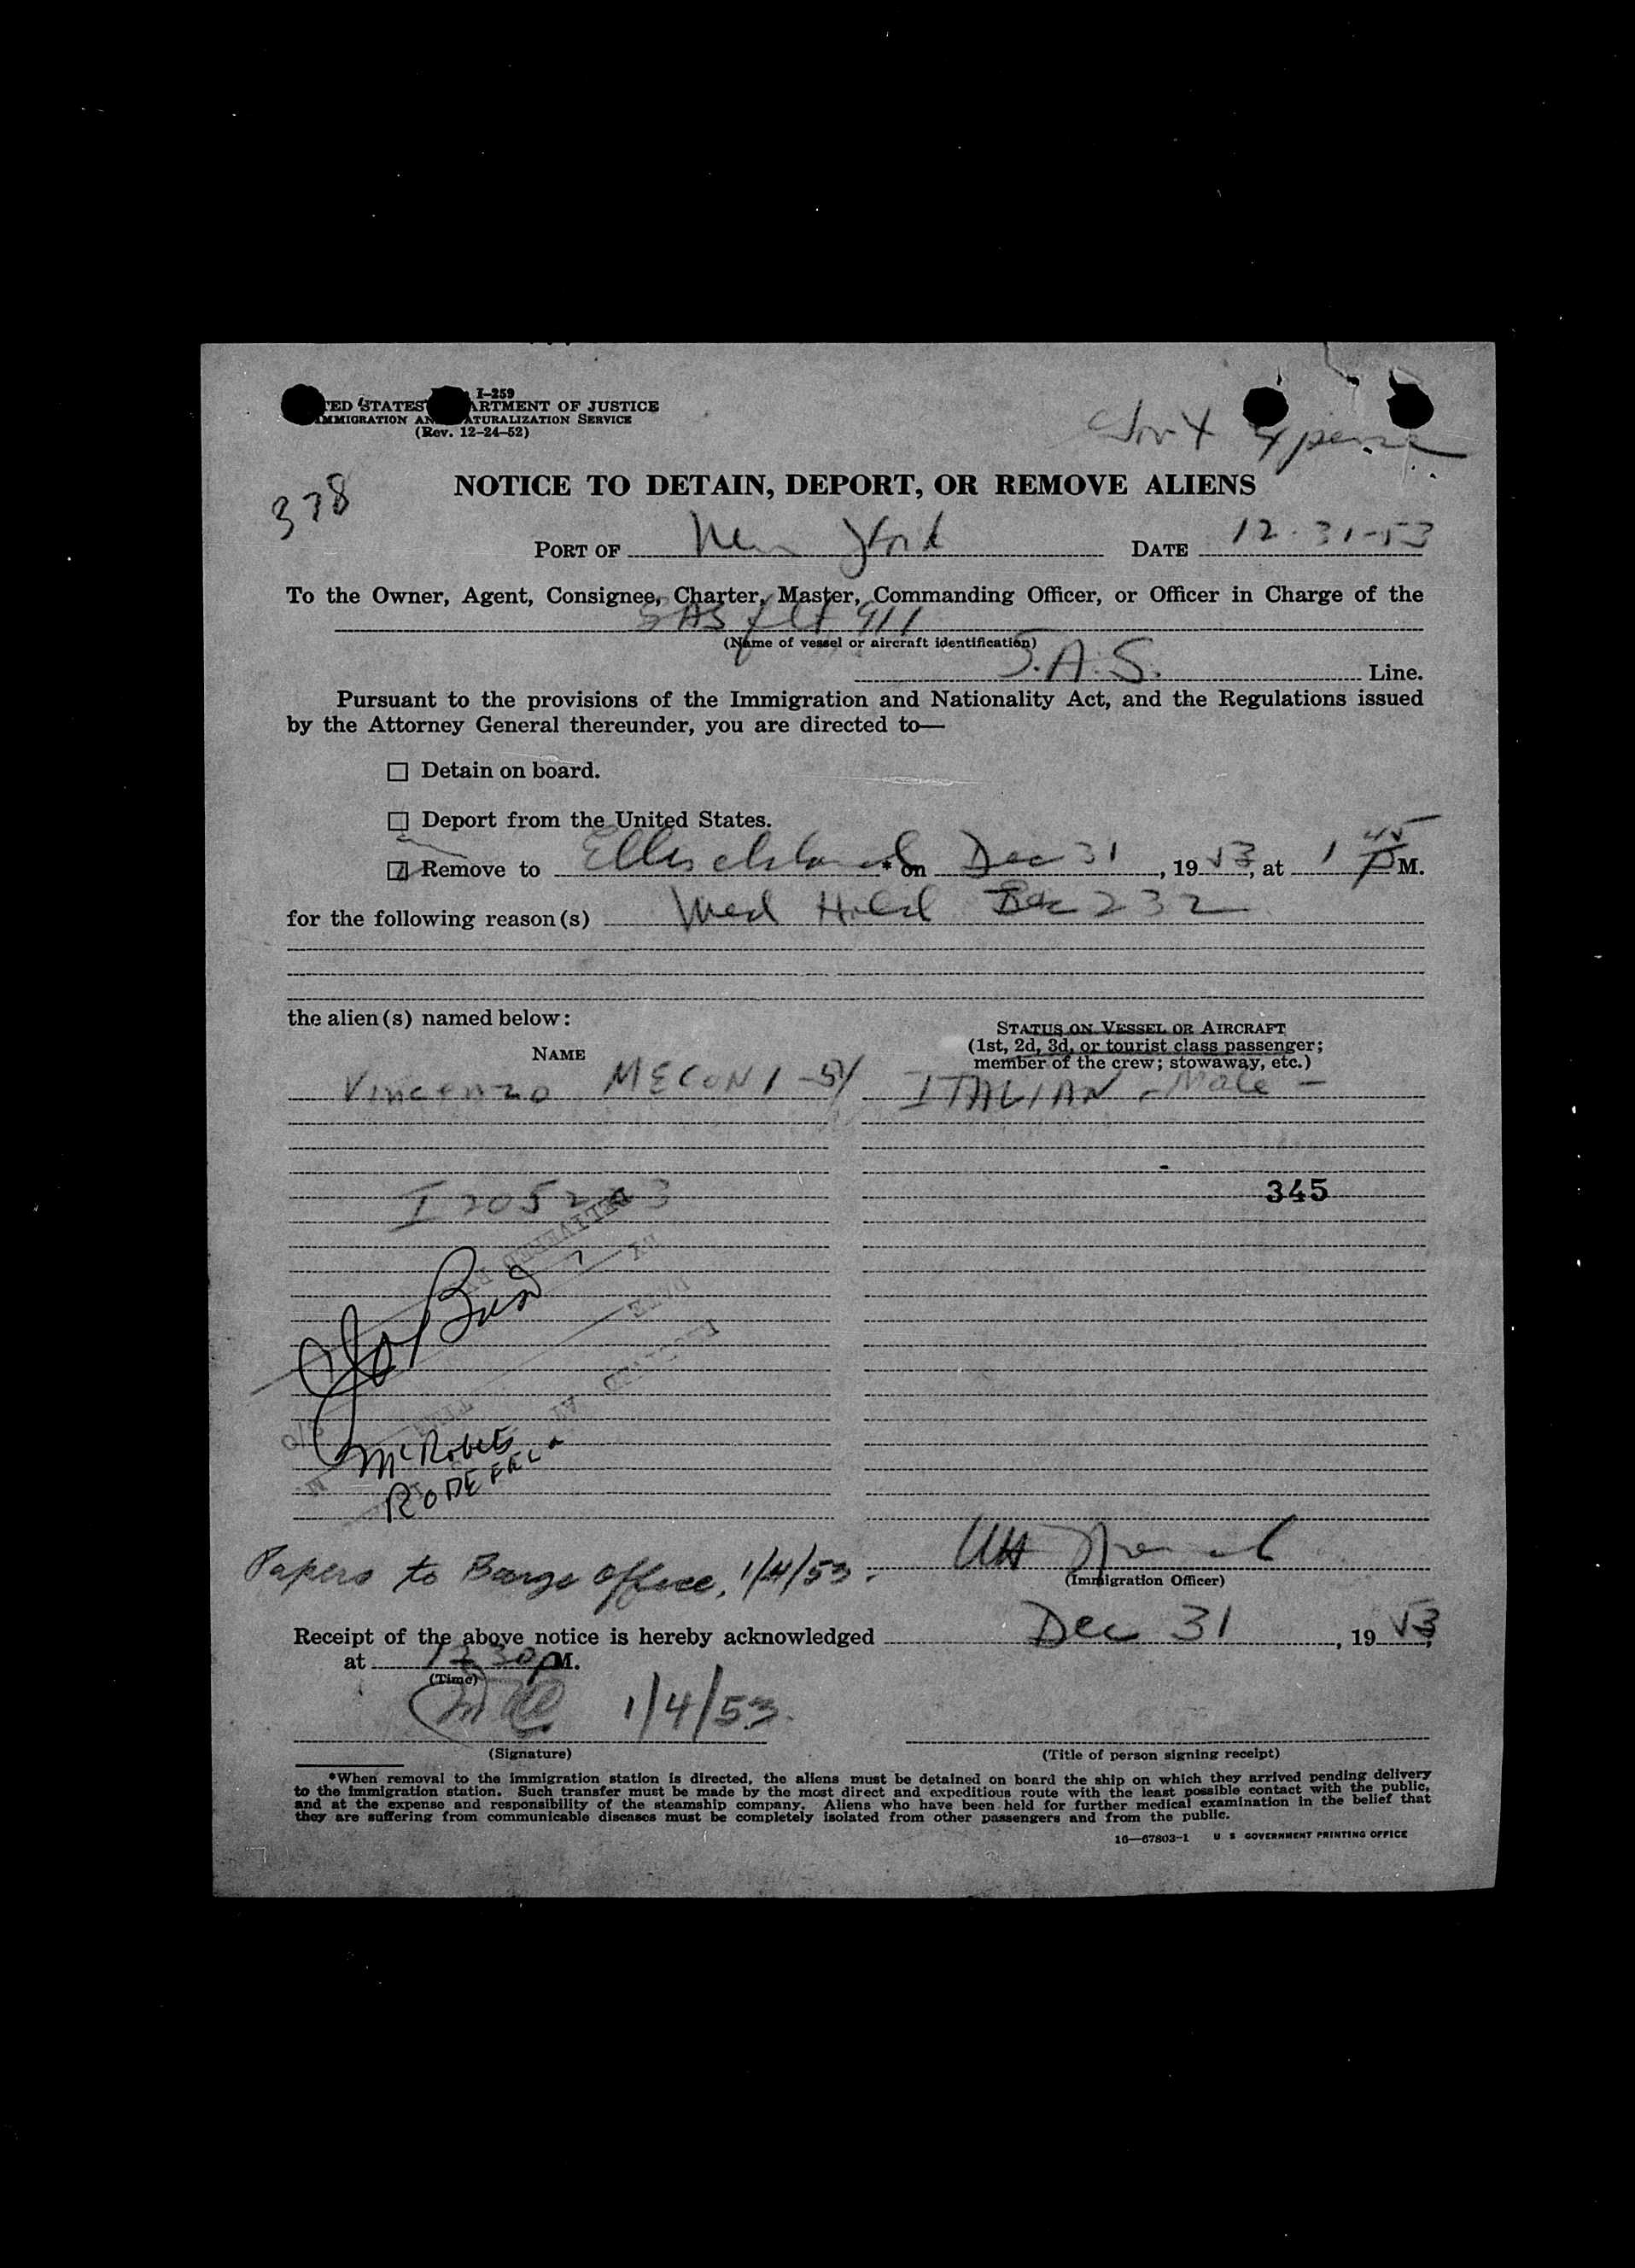 I-259
TED STATES ARTMENT OF JUSTICE
MMIGRATION AN ATURALIZATION SERVICE
(Rev. 12-24-52)
Gov't Expense
378
NOTICE TO DETAIN, DEPORT, OR REMOVE ALIENS
PORT OF New York DATE 12-31-53
To the Owner, Agent, Consignee, Charter, Master, Commanding Officer, or Officer in Charge of the
SAS flt 911
(Name of vessel or aircraft identification)
S.A.S. Line.
Pursuant to the provisions of the Immigration and Nationality Act, and the Regulations issued
by the Attorney General thereunder, you are directed to—
Detain on board.
Deport from the United States.
Remove to Ellis Island * on Dec 31, 1953, at 1 45 P M.
for the following reason(s) Med Hold Sec 232
the alien(s) named below:
NAME
STATUS ON VESSEL OR AIRCRAFT
(1st, 2d, 3d, or tourist class passenger;
member of the crew; stowaway, etc.)
Vincenzo MECONI - 54 ITALIAN - Male -
345
DELIVERED BY
DATE
RECEIVED AT
TIME
McRoberts
Papers to Barge Office, 1/4/53.
(Immigration Officer)
Receipt of the above notice is hereby acknowledged Dec 31, 1953
at 1 30 pM.
(Time)
1/4/53.
(Signature) (Title of person signing receipt)
*When removal to the immigration station is directed, the aliens must be detained on board the ship on which they arrived pending delivery
to the immigration station. Such transfer must be made by the most direct and expeditious route with the least possible contact with the public,
and at the expense and responsibility of the steamship company. Aliens who have been held for further medical examination in the belief that
they are suffering from communicable diseases must be completely isolated from other passengers and from the public.
16—67803-1 U S GOVERNMENT PRINTING OFFICE